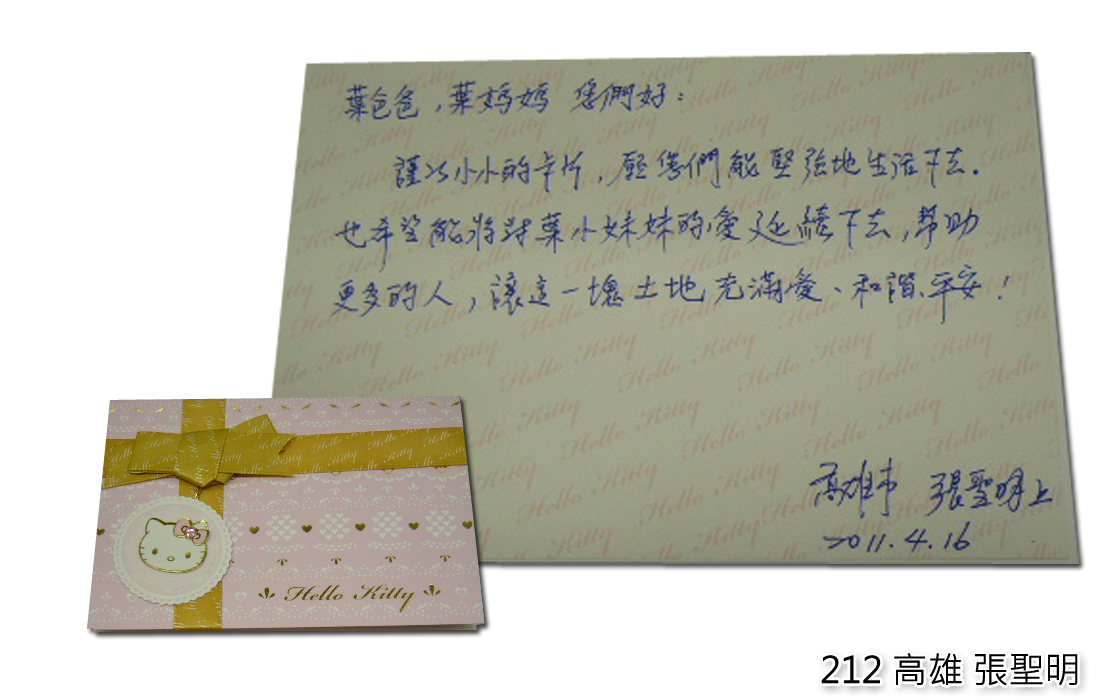 葉爸爸,葉媽媽 您們好:
謹以小小的卡片,願您們能堅強地生活下去.
也希望能將對葉小妹妹的愛延續下去,幫助
更多的人,讓這一塊土地充滿愛、和諧、平安!
高雄市 張聖明上
2011.4.16
Hello Kitty
212 高雄 張聖明